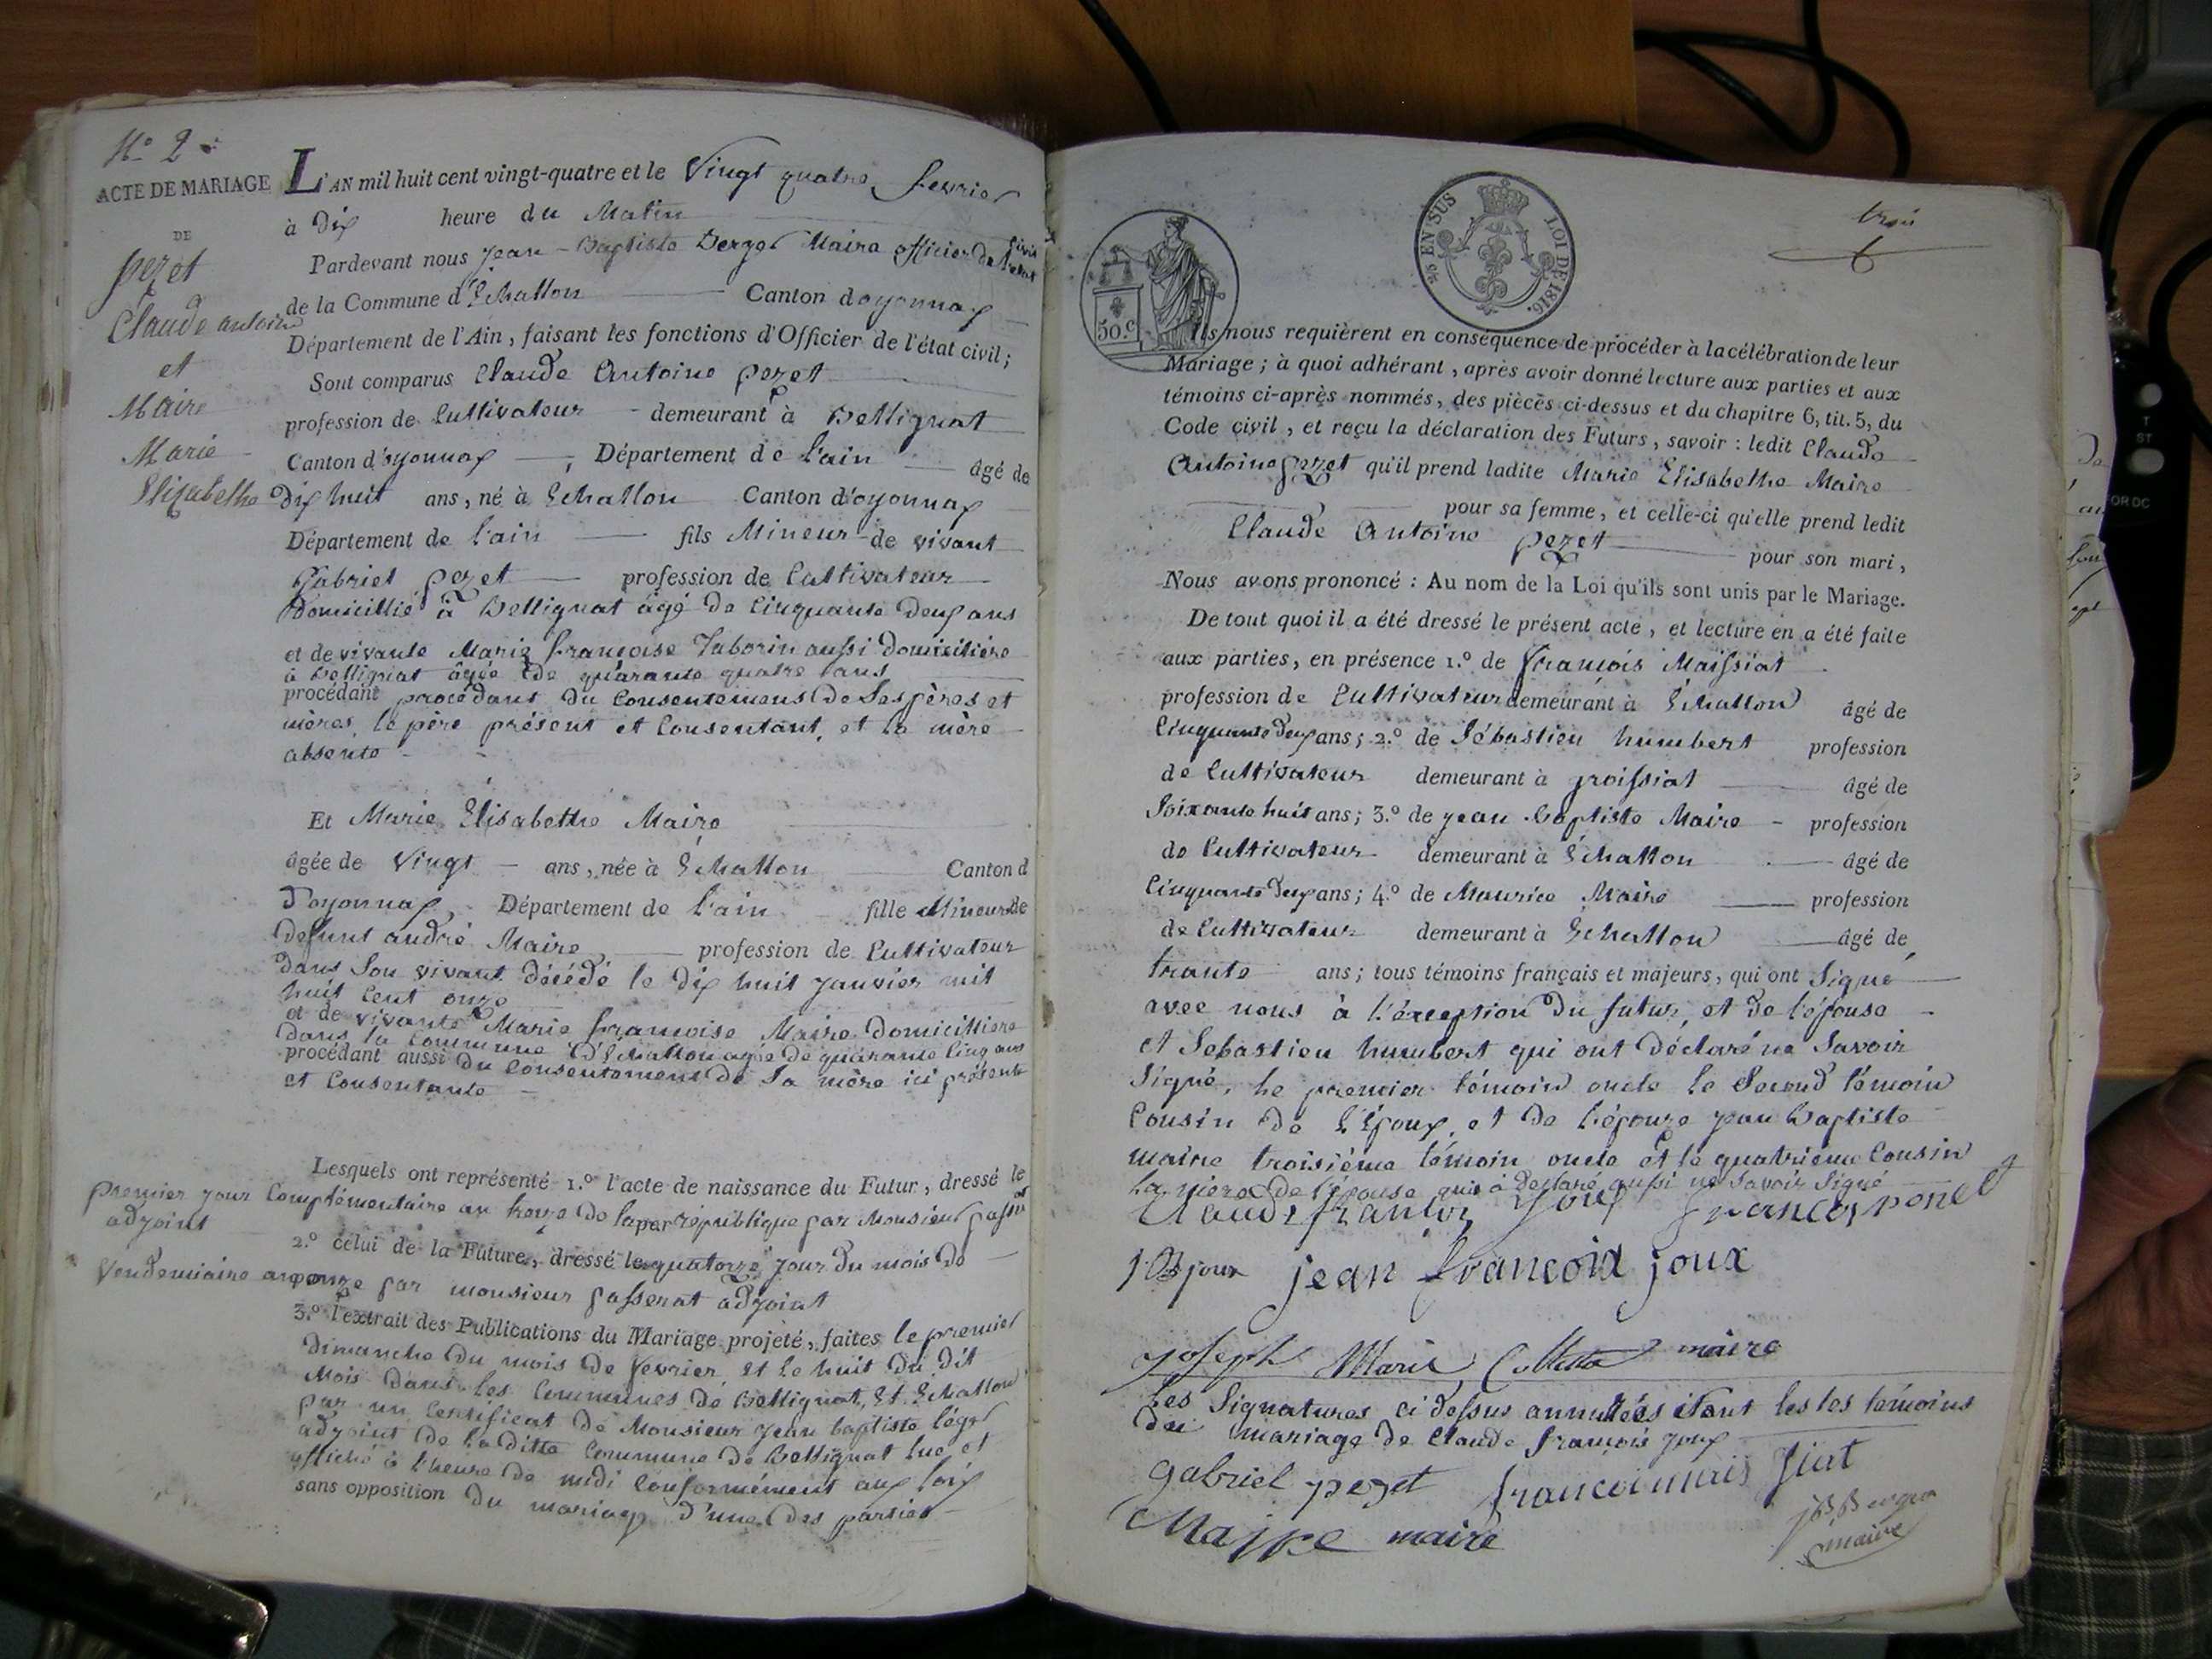 N.o 2
ACTE DE MARIAGE
DE
pezet
Claude antoine
et
Maire
Marie
Elisabethe
L'AN mil huit cent vingt-quatre et le Vingt quatre fevrier
à dix heure du Matin
Pardevant nous jean-Baptiste Berger Maire officier de l'etat civil
de la Commune d'Echallon Canton doyonnax
Département de l'Ain, faisant les fonctions d'Officier de l'état civil;
Sont comparus Claude Antoine pezet
profession de Cultivateur demeurant à Bellignat
Canton d'oyonnax, Département de l'ain âgé de
dix huit ans, né à Echallon Canton d'oyonnax
Département de l'ain fils Mineur de vivant
Gabriel pezet profession de Cultivateur
Domicillié à Bellignat âgé de Cinquante deux ans
et de vivante Marie françoise Taborin aussi Domicilière
à Bellignat âgée de quarante quatre ans
procédant procédant du Consentement de Ses pères et
mères, le père présent et Consentant, et la mère
absente
Et Marie Elisabethe Maire
âgée de Vingt ans, née à Echallon Canton d
D'oyonnax Département de l'ain fille Mineur de
Defunt andré Maire profession de Cultivateur
dans Son vivant décédé le dix huit janvier mil
huit Cent onze
et de vivante Marie françoise Maire Domicillière
dans la Commune d'Echallon agée de quarante Cinq ans
procédant aussi du Consentement de Sa mère ici présente
et Consentante
Lesquels ont représenté 1.o l'acte de naissance du Futur, dressé le
premier jour Complémentaire an treize de la par république par Monsieur
adjoint
2.o celui de la Future, dressé le quatorze jour du mois de
Vendemiaire an onze par monsieur passerat adjoint
3.o l'extrait des Publications du Mariage projeté, faites le premier
Dimanche du mois de fevrier, et le huit du dit
Mois dans les Communes de Bellignat, Et Echallon
par un Certificat de Monsieur jean baptiste léger
adjoint de la ditte Commune de Bellignat lue et
affiché à l'heure de midi Conformément aux loix
sans opposition du mariage d'une des parties
5 EN SUS LOI DE 1816.
50.c
trois
Ils nous requièrent en conséquence de procéder à la célébration de leur
Mariage; à quoi adhérant, après avoir donné lecture aux parties et aux
témoins ci-après nommés, des pièces ci-dessus et du chapitre 6, tit. 5, du
Code civil, et reçu la déclaration des Futurs, savoir: ledit Claude
Antoine pezet qu'il prend ladite Marie Elisabethe Maire
pour sa femme, et celle-ci qu'elle prend ledit
Claude Antoine pezet pour son mari,
Nous avons prononcé: Au nom de la Loi qu'ils sont unis par le Mariage.
De tout quoi il a été dressé le présent acte, et lecture en a été faite
aux parties, en présence 1.o de françois Maissiat
profession de Cultivateur demeurant à Echallon âgé de
Cinquante deux ans; 2.o de Sébastien humbert profession
de Cultivateur demeurant à groissiat âgé de
Soixante huit ans; 3.o de jean Baptiste Maire profession
de Cultivateur demeurant à Echallon âgé de
Cinquante deux ans; 4.o de Maurice Maire profession
de Cultivateur demeurant à Echallon âgé de
trante ans; tous témoins français et majeurs, qui ont Signé
avec nous à l'éxception du futur, et de l'épouse
et Sebastien humbert qui ont déclaré ne Savoir
Signé, le premier témoin oncle le Second témoin
Cousin de l'Epoux, et de l'épouze jean Baptiste
maire troisiéme témoin oncle et le quatrieme Cousin
La miere de l'épouse qui à declaré aussi ne Savoir Signé
Claude francois joux francois ponel
JB joux jean francoix joux
joseph Marie Colletta maire
Les Signatures ci dessus annullées étant les tes témoins
du mariage de Claude françois joux
gabriel pezet francoi mais Siat
Maire maire
maire